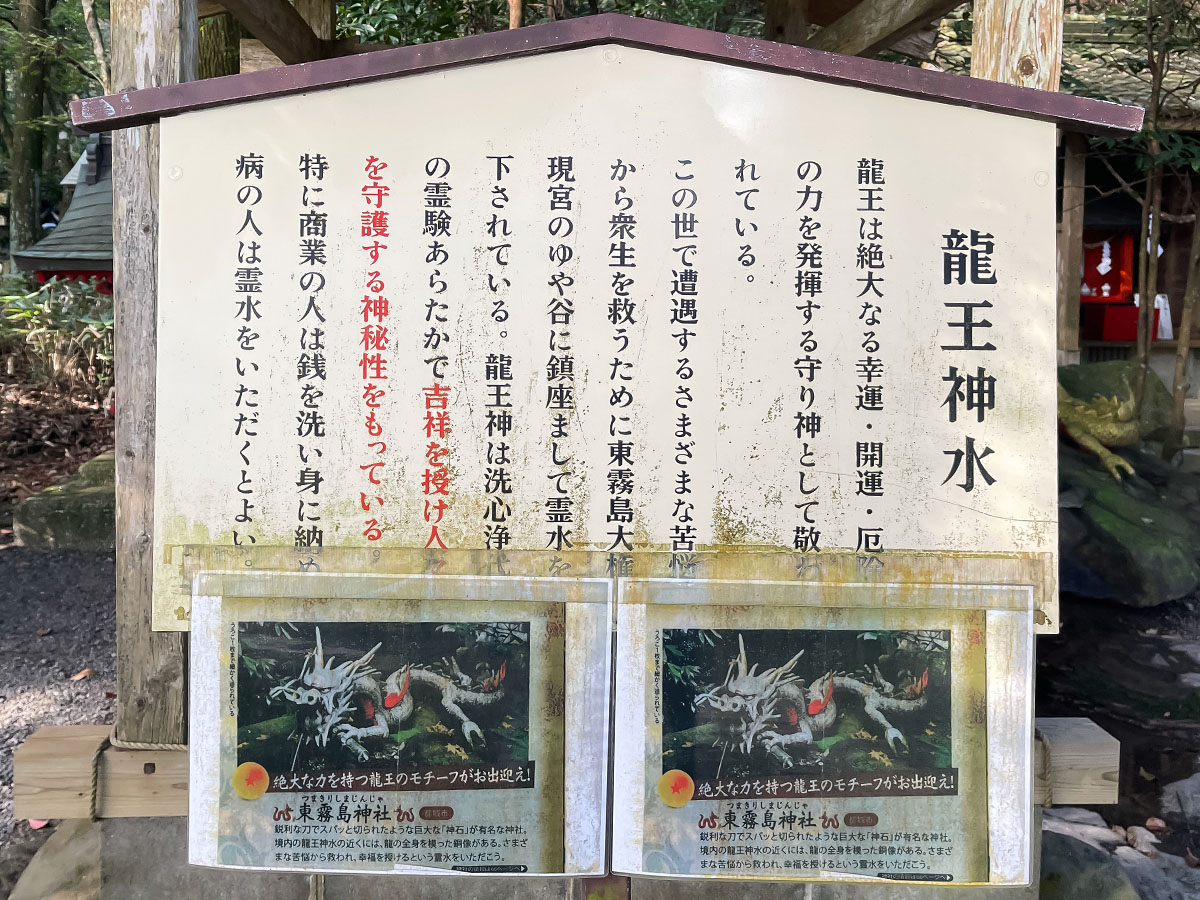 龍王神水
龍王は絶大なる幸運・開運・厄除
の力を発揮する守り神として敬わ
れている。
この世で遭遇するさまざまな苦悩
から衆生を救うために東霧島大権
現宮のゆや谷に鎮座まして霊水を
下されている。龍王神は洗心浄
の霊験あらたかで吉祥を授け人々
を守護する神秘性をもっている。
特に商業の人は銭を洗い身に納め
病の人は霊水をいただくとよい。
うろこ一枚まで細かく塗られている
絶大な力を持つ龍王のモチーフがお出迎え!
つまきりしまじんじゃ
東霧島神社 都城市
鋭利な刀でスパッと切られたような巨大な「神石」が有名な神社。
境内の龍王神水の近くには、龍の全身を模った銅像がある。さまざ
まな苦悩から救われ、幸福を授けるという霊水をいただこう。
うろこ一枚まで細かく塗られている
絶大な力を持つ龍王のモチーフがお出迎え!
つまきりしまじんじゃ
東霧島神社 都城市
鋭利な刀でスパッと切られたような巨大な「神石」が有名な神社。
境内の龍王神水の近くには、龍の全身を模った銅像がある。さまざ
まな苦悩から救われ、幸福を授けるという霊水をいただこう。